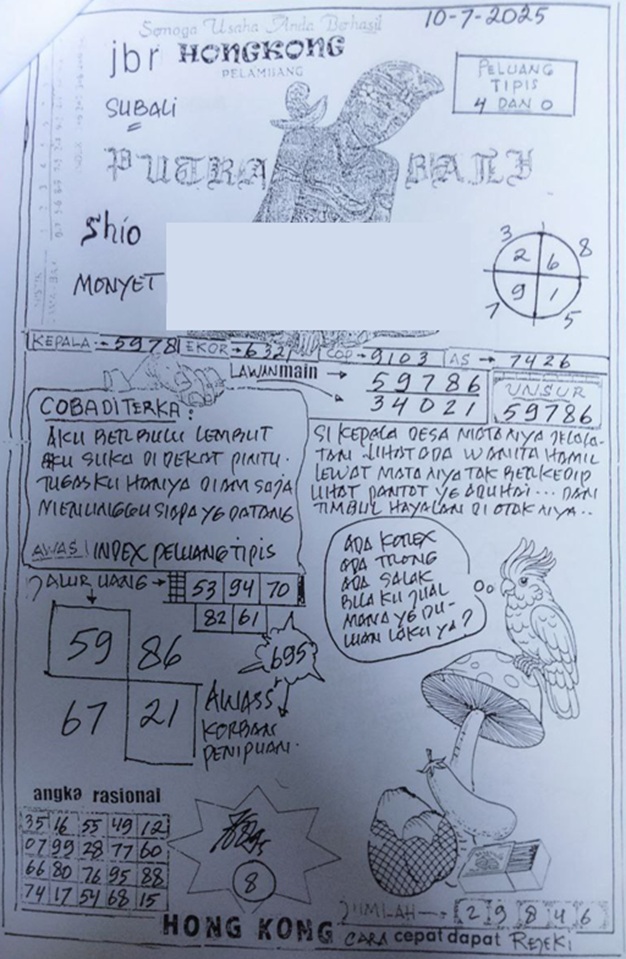 Semoga Usaha Anda Berhasil
10-7-2025
jbr HONGKONG
PELAMIIANG
PELUANG
TIPIS
4 DAN 0
SUBALI
PUTRA BALI
Shio
MONYET
3
2 6 8
9 1
7 5
KEPALA → 59781 EKOR → 6321 COP → 9103 AS → 7426
LAWAN main → 59786
34021
UNSUR
59786
COBA DITERKA :
AKU BERBULU LEMBUT
AKU SUKA DI DEKAT PINTU.
TUGASKU HANYA DIAM SAJA
MENUNGGU SIAPA YG DATANG
AWAS! INDEX PELUANG TIPIS
SI KEPALA DESA MATANYA JELALA-
TAN LIHAT ADA WANITA HAMIL
LEWAT MATANYA TAK BERKEDIP
LIHAT PANTAT YG ADUHAI... DAN
TIMBUL HAYALAN DI OTAKNYA..
ADA KOREX
ADA TRONG
ADA SALAK
BILA KU JUAL
MANA YG DU-
LUAN LAKU YA?
JALUR UANG → 53 94 70
82 61
59 86
695
67 21
AWASS
KORBAN
PENIPUAN.
angka rasional
35 16 55 49 12
07 99 28 77 60
66 80 76 95 88
74 17 54 68 15
8
JUMLAH → 2 9 8 4 6
HONG KONG CARA cepat dapat REJEKI